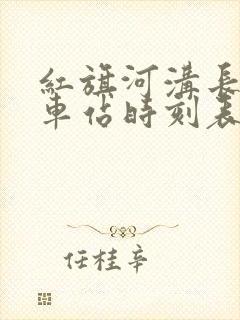 紅旗河溝長
車站時刻表
任桂辛